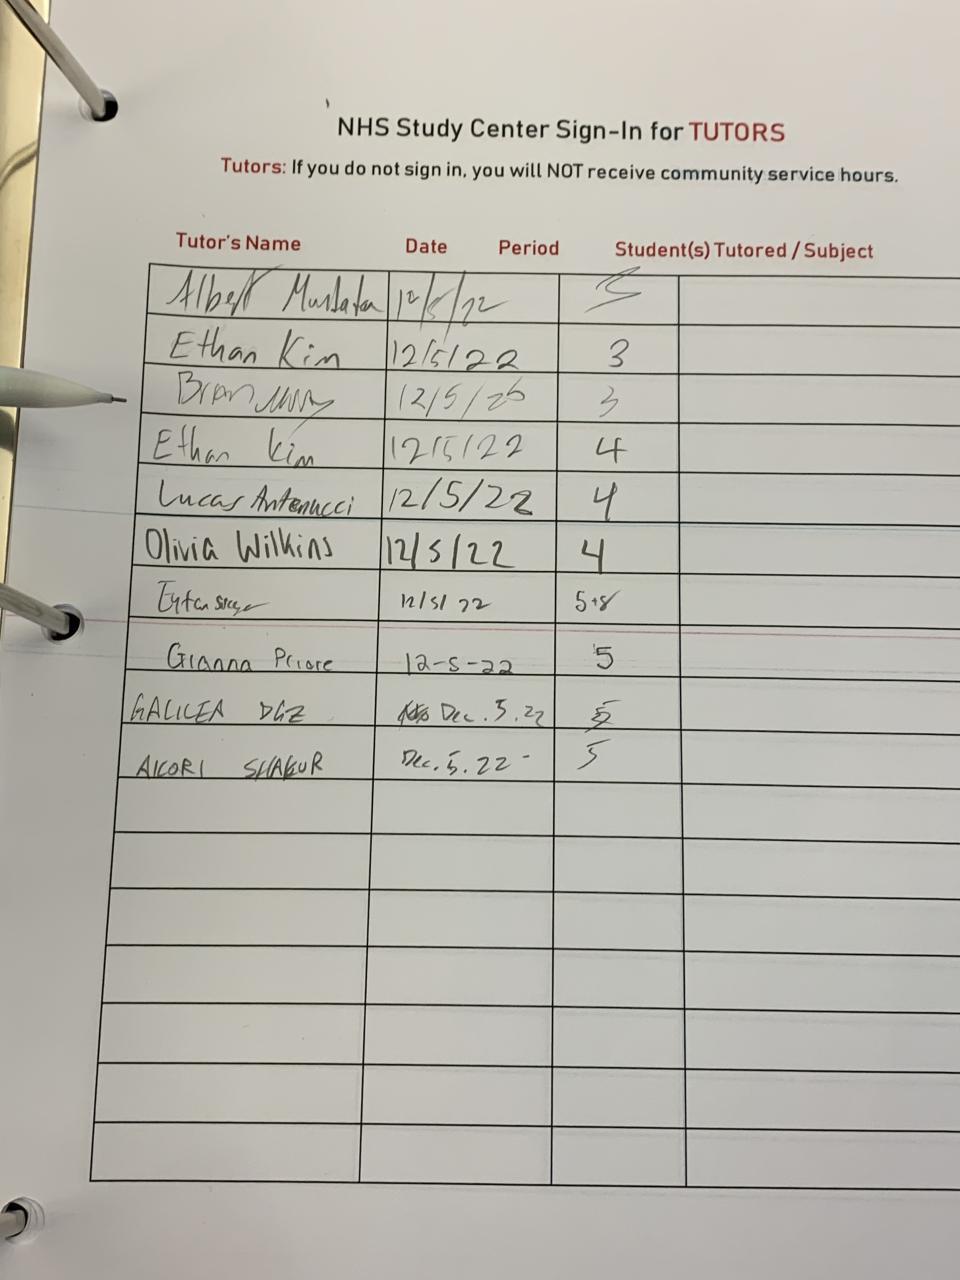 NHS Study Center Sign-In for TUTORS
Tutors: If you do not sign in, you will NOT receive community service hours.
Tutor's Name Date Period Student(s) Tutored / Subject
Albert 12/5/22
Ethan Kim 12/5/22 3
Brian 12/5/ 3
Ethan Kim 12/5/22 4
Lucas Antenucci 12/5/22 4
Olivia Wilkins 12/5/22 4
12/5/22 5+8
Gianna Priore 12-5-22 5
GALILEA DGZ Dec. 5. 22 5
AKORI SHAKUR Dec. 5. 22 5